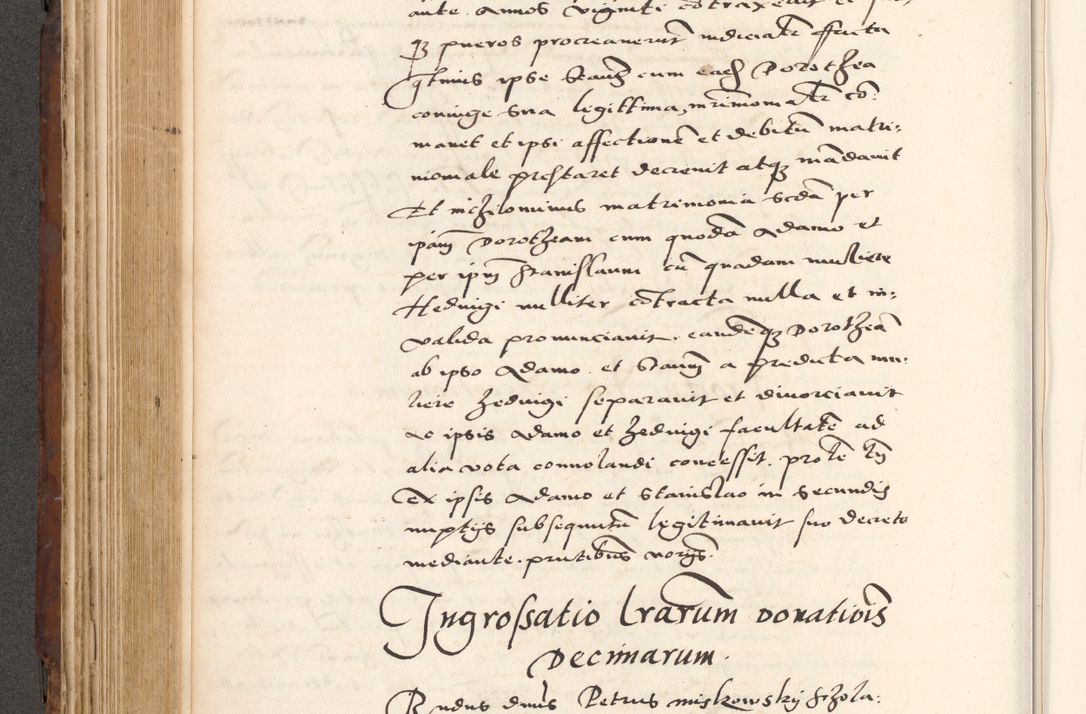 ante Annos viginti contraxerit et
qz pueros procreaverunt iudicialr
qtinus ipse Stanz cum eadz Dorothea
coniuge sua legittima, mrimonialr co:
manet et ipsi affectionē et debitū matri:
moniale prestaret decrevit atqz mādavit
Et nichilominus matrimonia Scdā per
ipām Dorotheam cum quodā Adamo et
per ipm Stanislaum cū quadam muliere
Hedvigi nulliter cōtracta nulla et in:
valida pronunciavit, eandēqz Dorotheā
ab ipso Adamo et Stanm a predicta mu:
liere Hedvigi separavit et divorciavit
ac ipsis Adamo et Hedvigi facultatē ad
alia vota convolandi concessit. prolē tn
Ex ipsis Adamo et Stanislao in secundis
nuptijs subsequutā legitimavit suo decreto
mediante. pntibus
Ingrossatio lrarum donatiōis
Decimarum.
Rndus dnus Petrus miskowskj Schola: